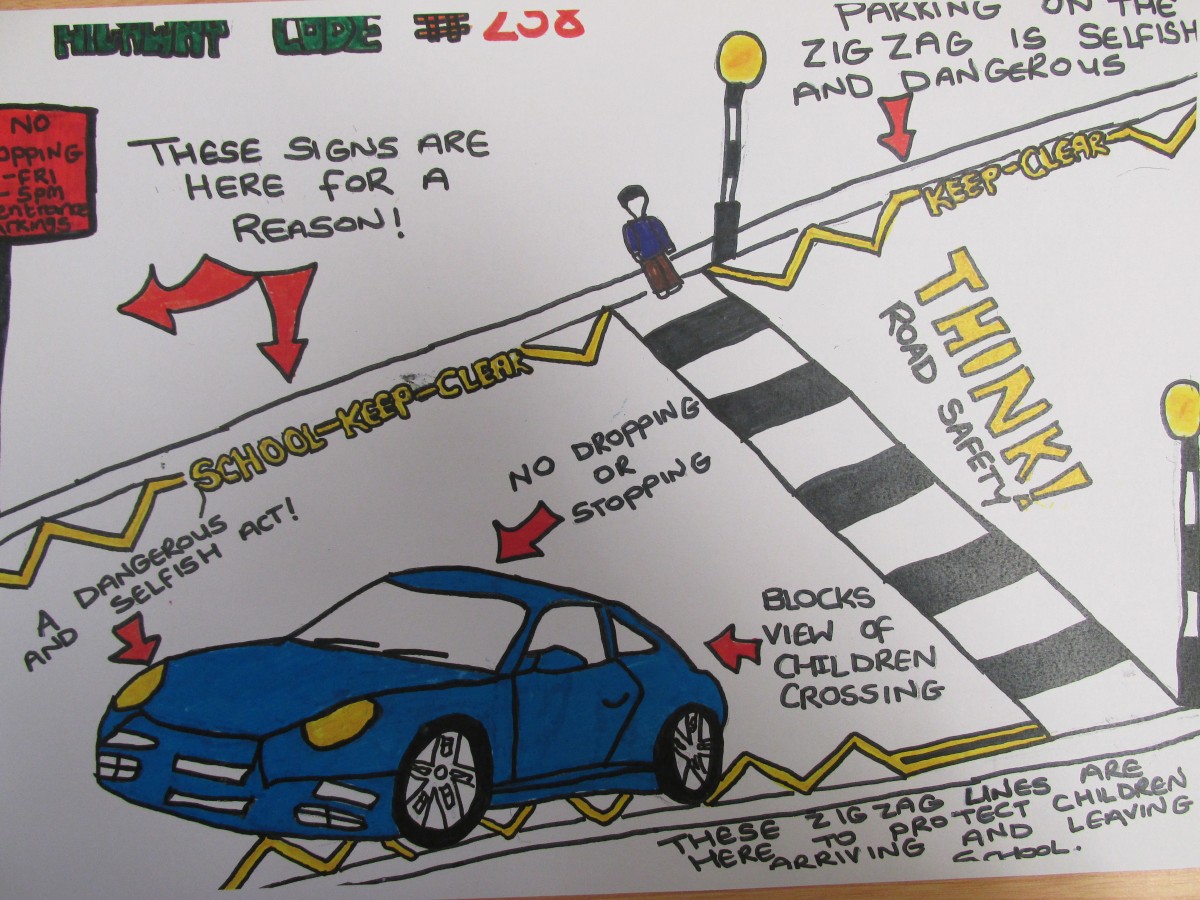 HIGHWAY CODE # 238
PARKING ON THE
ZIG ZAG IS SELFISH
AND DANGEROUS
NO
OPPING
-FRI
- 5pm
entrance
arkings
THESE SIGNS ARE
HERE FOR A
REASON!
KEEP-CLEAR
THINK!
ROAD SAFETY
SCHOOL-KEEP-CLEAR
NO DROPPING
OR
STOPPING
A DANGEROUS
AND SELFISH ACT!
BLOCKS
VIEW OF
CHILDREN
CROSSING
THESE ZIG ZAG LINES ARE
HERE TO PROTECT CHILDREN
ARRIVING AND LEAVING
SCHOOL.